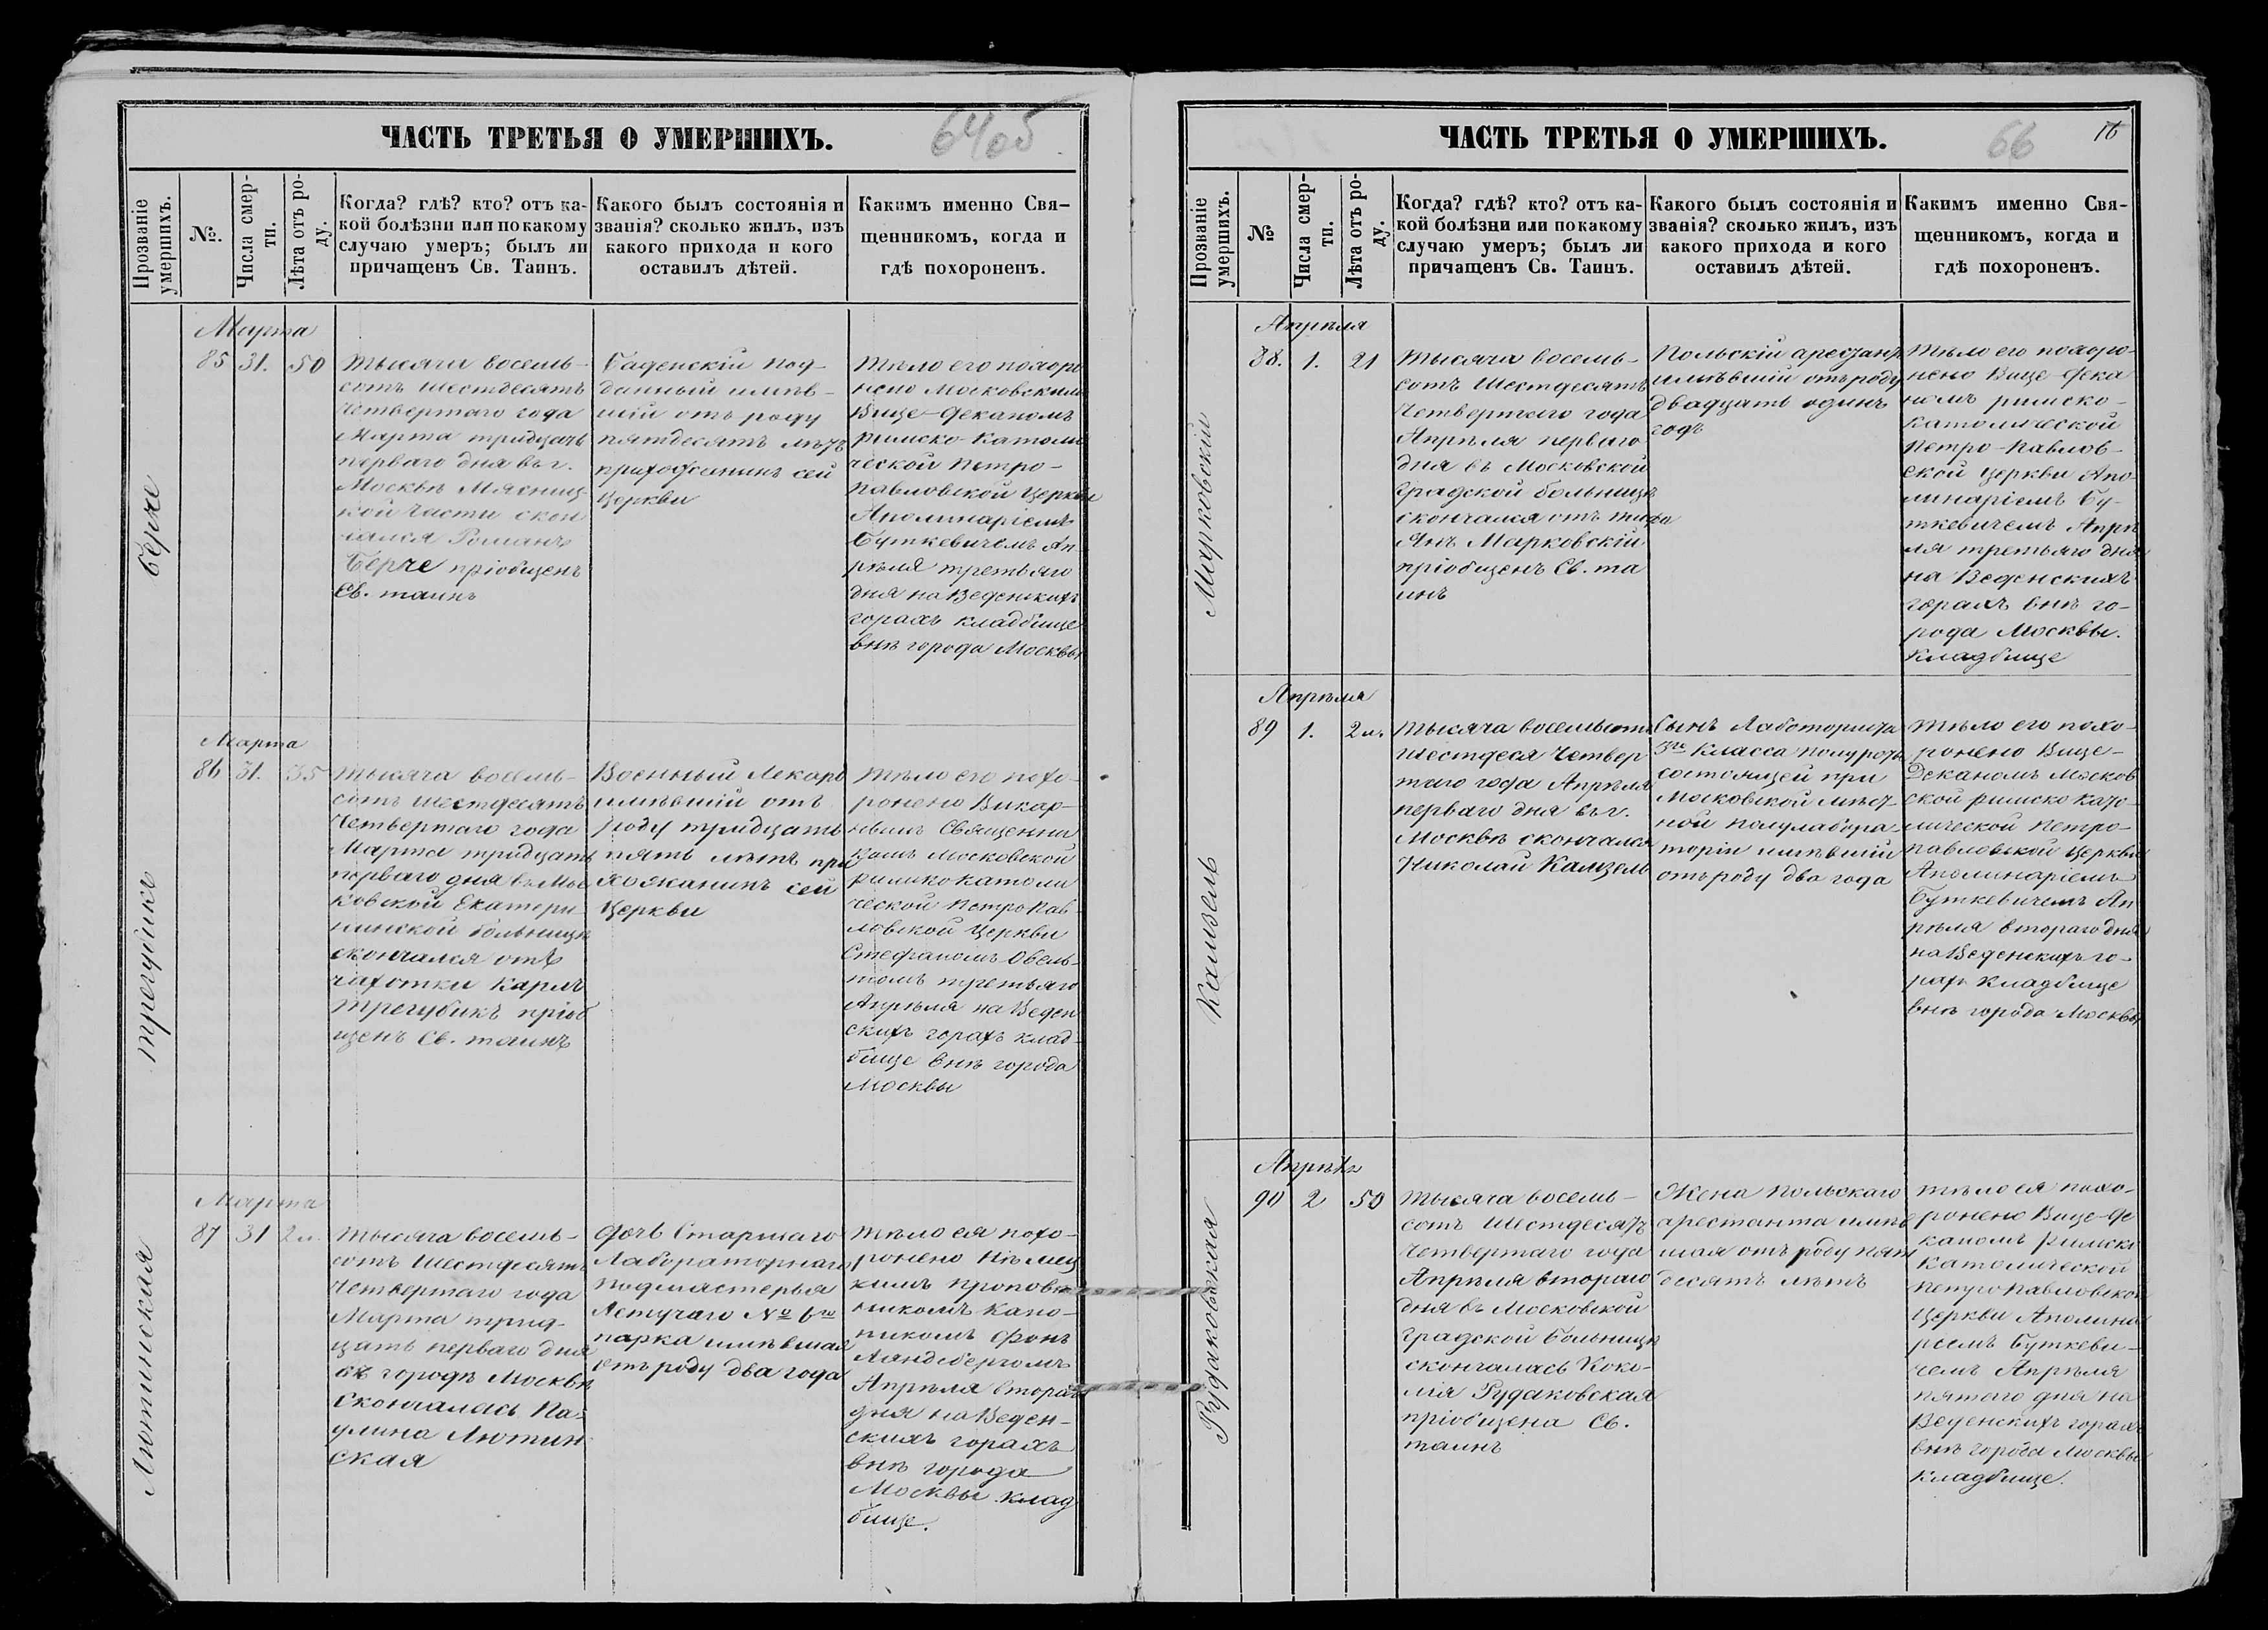 ЧАСТЬ ТРЕТЬЯ О УМЕРШИХЪ.
64об
Прозваніе умершихъ.
№.
Числа смерти.
Лѣта отъ роду.
Когда? гдѣ? кто? отъ ка-
кой болѣзни или по какому
случаю умеръ; былъ ли
причащенъ Св. Таинъ.
Какого былъ состоянія и
званія? сколько жилъ, изъ
какого прихода и кого
оставилъ дѣтей.
Какимъ именно Свя-
щенникомъ, когда и
гдѣ похороненъ.
Берче
Марта
85 31. 50
Тысяча восемь-
сотъ шестдесятъ
Четвертаго года
Марта тридцать
перваго дня въ г.
Москвѣ Мясниц-
кой части скон
чался Романъ
Берче пріобщенъ
Св. таинъ
Баденскій под-
данный имѣв-
шій отъ роду
пятдесятъ лѣтъ
прихожанинъ сей
Церкви
Тѣло его похоро
нено Московскимъ
Вице-Деканомъ
римско-католи
ческой Петро-
павловской Церкви
Аполинаріемъ
Буткевичемъ Ап-
рѣля третьяго
дня на Веденскихъ
горахъ кладбище
внѣ города Москвы
Трегубикъ
Марта
86 31. 35
Тысяча восемь-
сотъ шестдесятъ
Четвертаго года
Марта тридцать
перваго дня въ Мос
ковской Екатери
нинской больницѣ
скончался отъ
чахотки Карлъ
Трегубикъ пріоб
щенъ Св. таинъ
Военный Лекарь
имѣвшій отъ
роду тридцать
пять лѣтъ при
хожанинъ сей
Церкви
Тѣло его похо-
ронено Викар-
нымъ Священни
комъ Московской
римско католи
ческой Петропав-
ловской Церкви
Стефаномъ Овель-
томъ третьяго
Апрѣля на Веден
скихъ горахъ клад-
бище внѣ города
Москвы
Лютинская
Марта
87 31 2 л.
Тысяча восемь-
сотъ шестдесятъ
Четвертаго года
Марта трид-
цать перваго дня
въ городѣ Москвѣ
Скончалась Па-
улина Лютин
ская
Дочь Старшаго
Лабораторнаго
подмастерья
Летучаго № 6го
парка имѣвшая
отъ роду два года
Тѣло ея похо-
ронено Нѣмец
кимъ проповѣд
никомъ Кано-
никомъ Фонъ
Ляндсбергомъ
Апрѣля втораго
дня на Веден-
скихъ горахъ
внѣ города
Москвы клад
бище.
ЧАСТЬ ТРЕТЬЯ О УМЕРШИХЪ.
66
16
Прозваніе умершихъ.
№
Числа смерти.
Лѣта отъ роду.
Когда? гдѣ? кто? отъ ка-
кой болѣзни или по какому
случаю умеръ; былъ ли
причащенъ Св. Таинъ.
Какого былъ состоянія и
званія? сколько жилъ, изъ
какого прихода и кого
оставилъ дѣтей.
Какимъ именно Свя-
щенникомъ, когда и
гдѣ похороненъ.
Марковскій
Апрѣля
88. 1. 21
Тысяча восемь-
сотъ Шестдесятъ
Четвертаго года
Апрѣля перваго
дня въ Московской
Градской больницѣ
скончался отъ тифа
Янъ Марковскій
пріобщенъ Св. та
инъ
Польскій арестантъ
имѣвшій отъ роду
двадцать одинъ
годъ
Тѣло его похоро-
нено Вице-Дека
номъ римско-
католической
Петро-Павлов-
ской Церкви Апо-
линаріемъ Бу-
ткевичемъ Апрѣ
ля третьяго дня
на Веденскихъ
горахъ внѣ го-
рода Москвы.
кладбище
Камзель
Апрѣля
89 1. 2 л.
Тысяча восемьсотъ
Шестдеся Четвер
таго года Апрѣля
перваго дня въ г.
Москвѣ скончался
Николай Камзель
Сынъ Лаботориста
3го класса полуроты
состоящей при
Московской мѣст-
ной полулабора-
торіи имѣвшій
отъ роду два года
Тѣло его похо-
ронено Вице-
Деканомъ Москов
ской римско като-
лической Петро-
павловской Церкви
Аполинаріемъ
Буткевичемъ Ап
рѣля втораго дня
на Веденскихъ го-
рахъ кладбище
внѣ города Москвы
Рудаковская
Апрѣля
90 2 50
Тысяча восемь-
сотъ Шестдесятъ
Четвертаго года
Апрѣля втораго
дня въ Московской
градской больницѣ
скончалась Коко-
лія Рудаковская
пріобщена Св.
таинъ
Жена польскаго
арестанта имѣв
шая отъ роду пят
десятъ лѣтъ
Тѣло ея похо-
ронено Вице-Де
каномъ римско
католической
Петропавловской
Церкви Аполина
ріемъ Буткеви-
чемъ Апрѣля
пятаго дня на
Веденскихъ горахъ
внѣ города Москвы
кладбище.